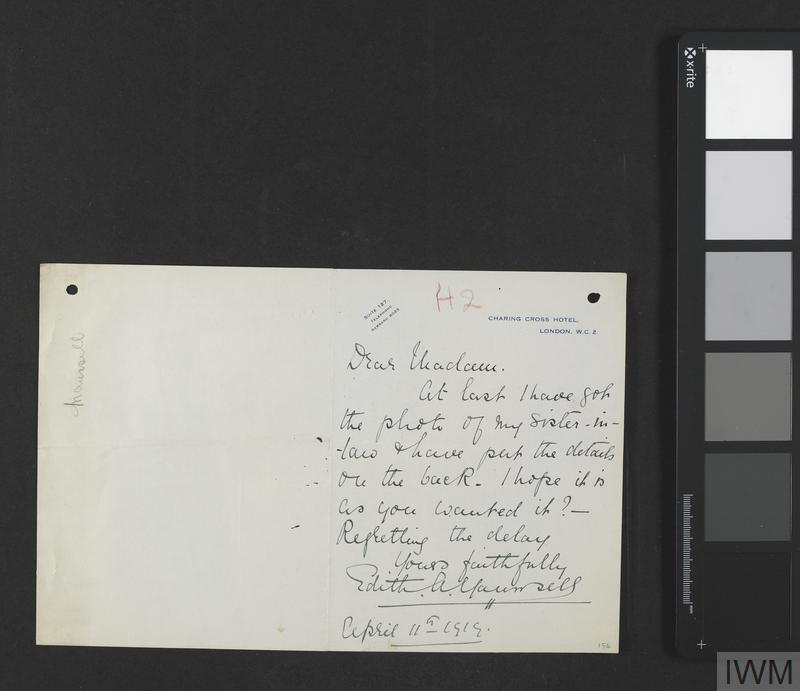 Maunsell
SUITE 137.
TELEPHONE
H2
CHARING CROSS HOTEL,
LONDON, W.C.2.
Dear Madam.
At last I have got
the photo of my sister-in-
-law & have put the details
on the back. I hope it is
as you wanted it? —
Regretting the delay
Yours faithfully
Edith. A. Maunsell
April 11th 1919.
156
x-rite
IWM